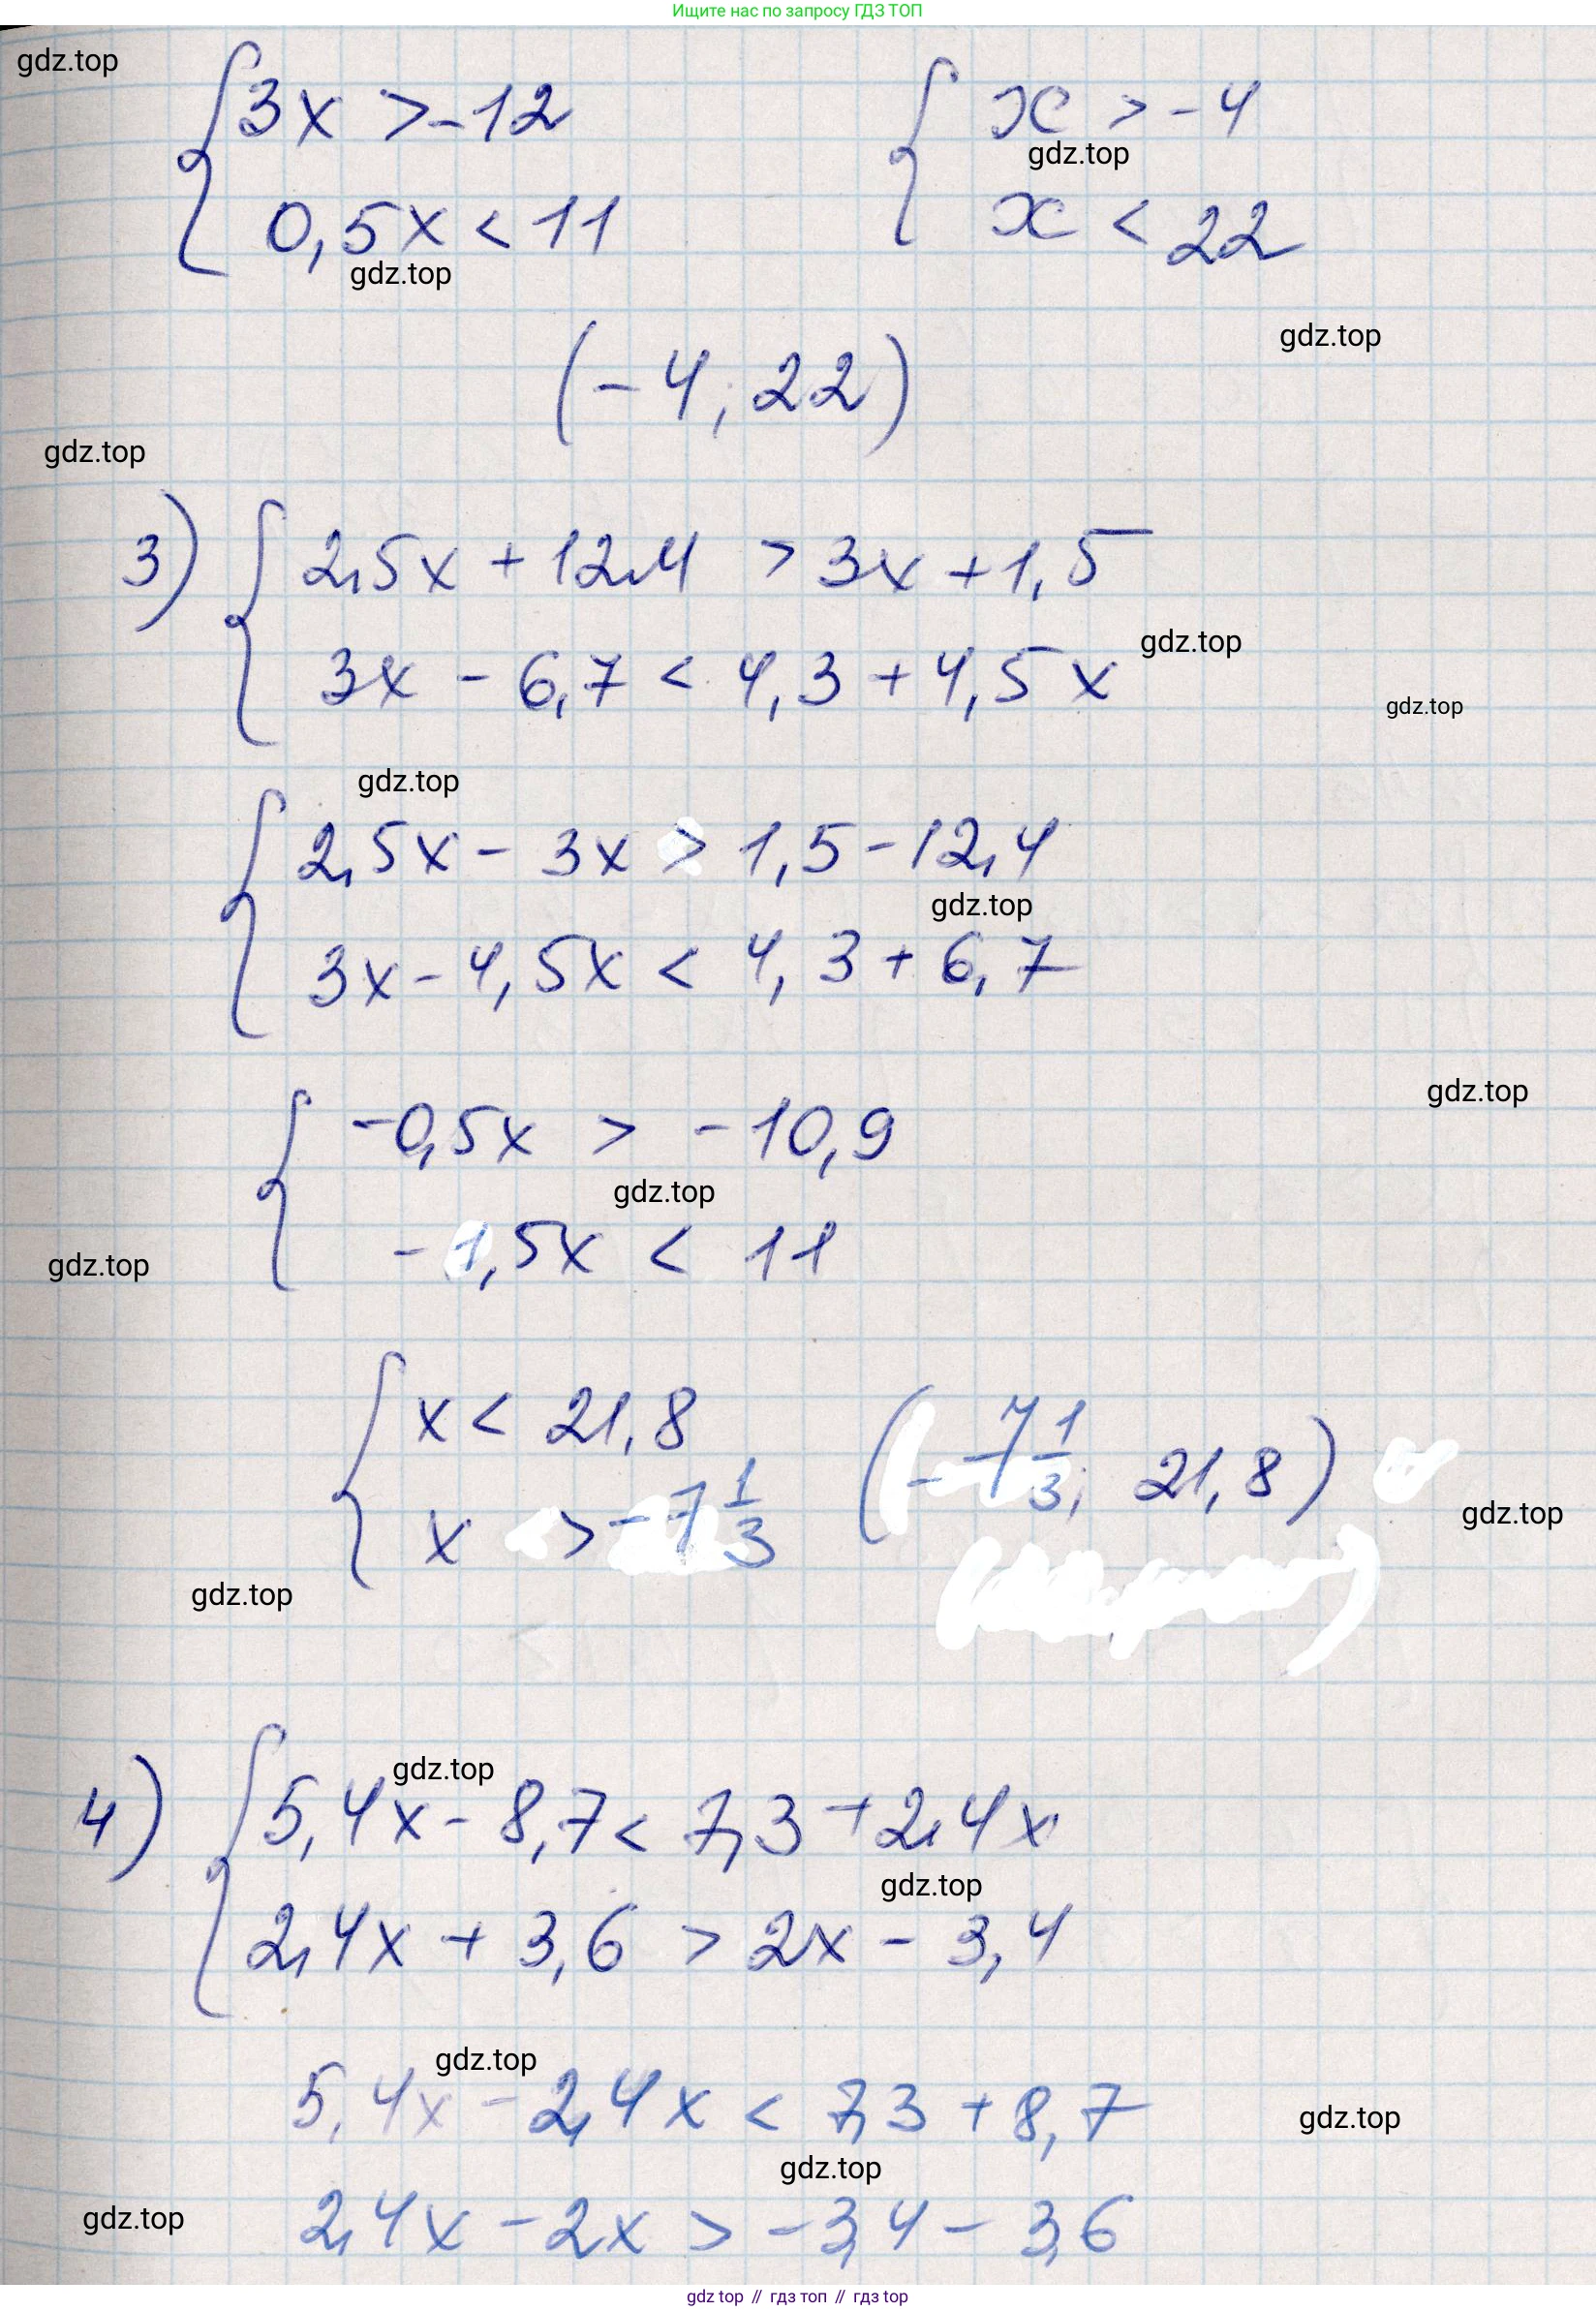 Ищите нас по запросу ГДЗ ТОП
gdz.top
{ 3x > -12 { x > -4
gdz.top
0,5x < 11 x < 22
gdz.top
gdz.top
(-4; 22)
gdz.top
3) { 2,5x + 12,4 > 3x + 1,5
gdz.top
3x - 6,7 < 4,3 + 4,5x
gdz.top
gdz.top
{ 2,5x - 3x > 1,5 - 12,4
gdz.top
3x - 4,5x < 4,3 + 6,7
gdz.top
{ -0,5x > -10,9
gdz.top
-1,5x < 11
gdz.top
{ x < 21,8 (-7 1/3; 21,8)
x > -7 1/3
gdz.top
gdz.top
gdz.top
4) { 5,4x - 8,7 < 7,3 + 2,4x
gdz.top
2,4x + 3,6 > 2x - 3,4
gdz.top
5,4x - 2,4x < 7,3 + 8,7
gdz.top
gdz.top
2,4x - 2x > -3,4 - 3,6
gdz.top
gdz top // гдз топ // гдз top